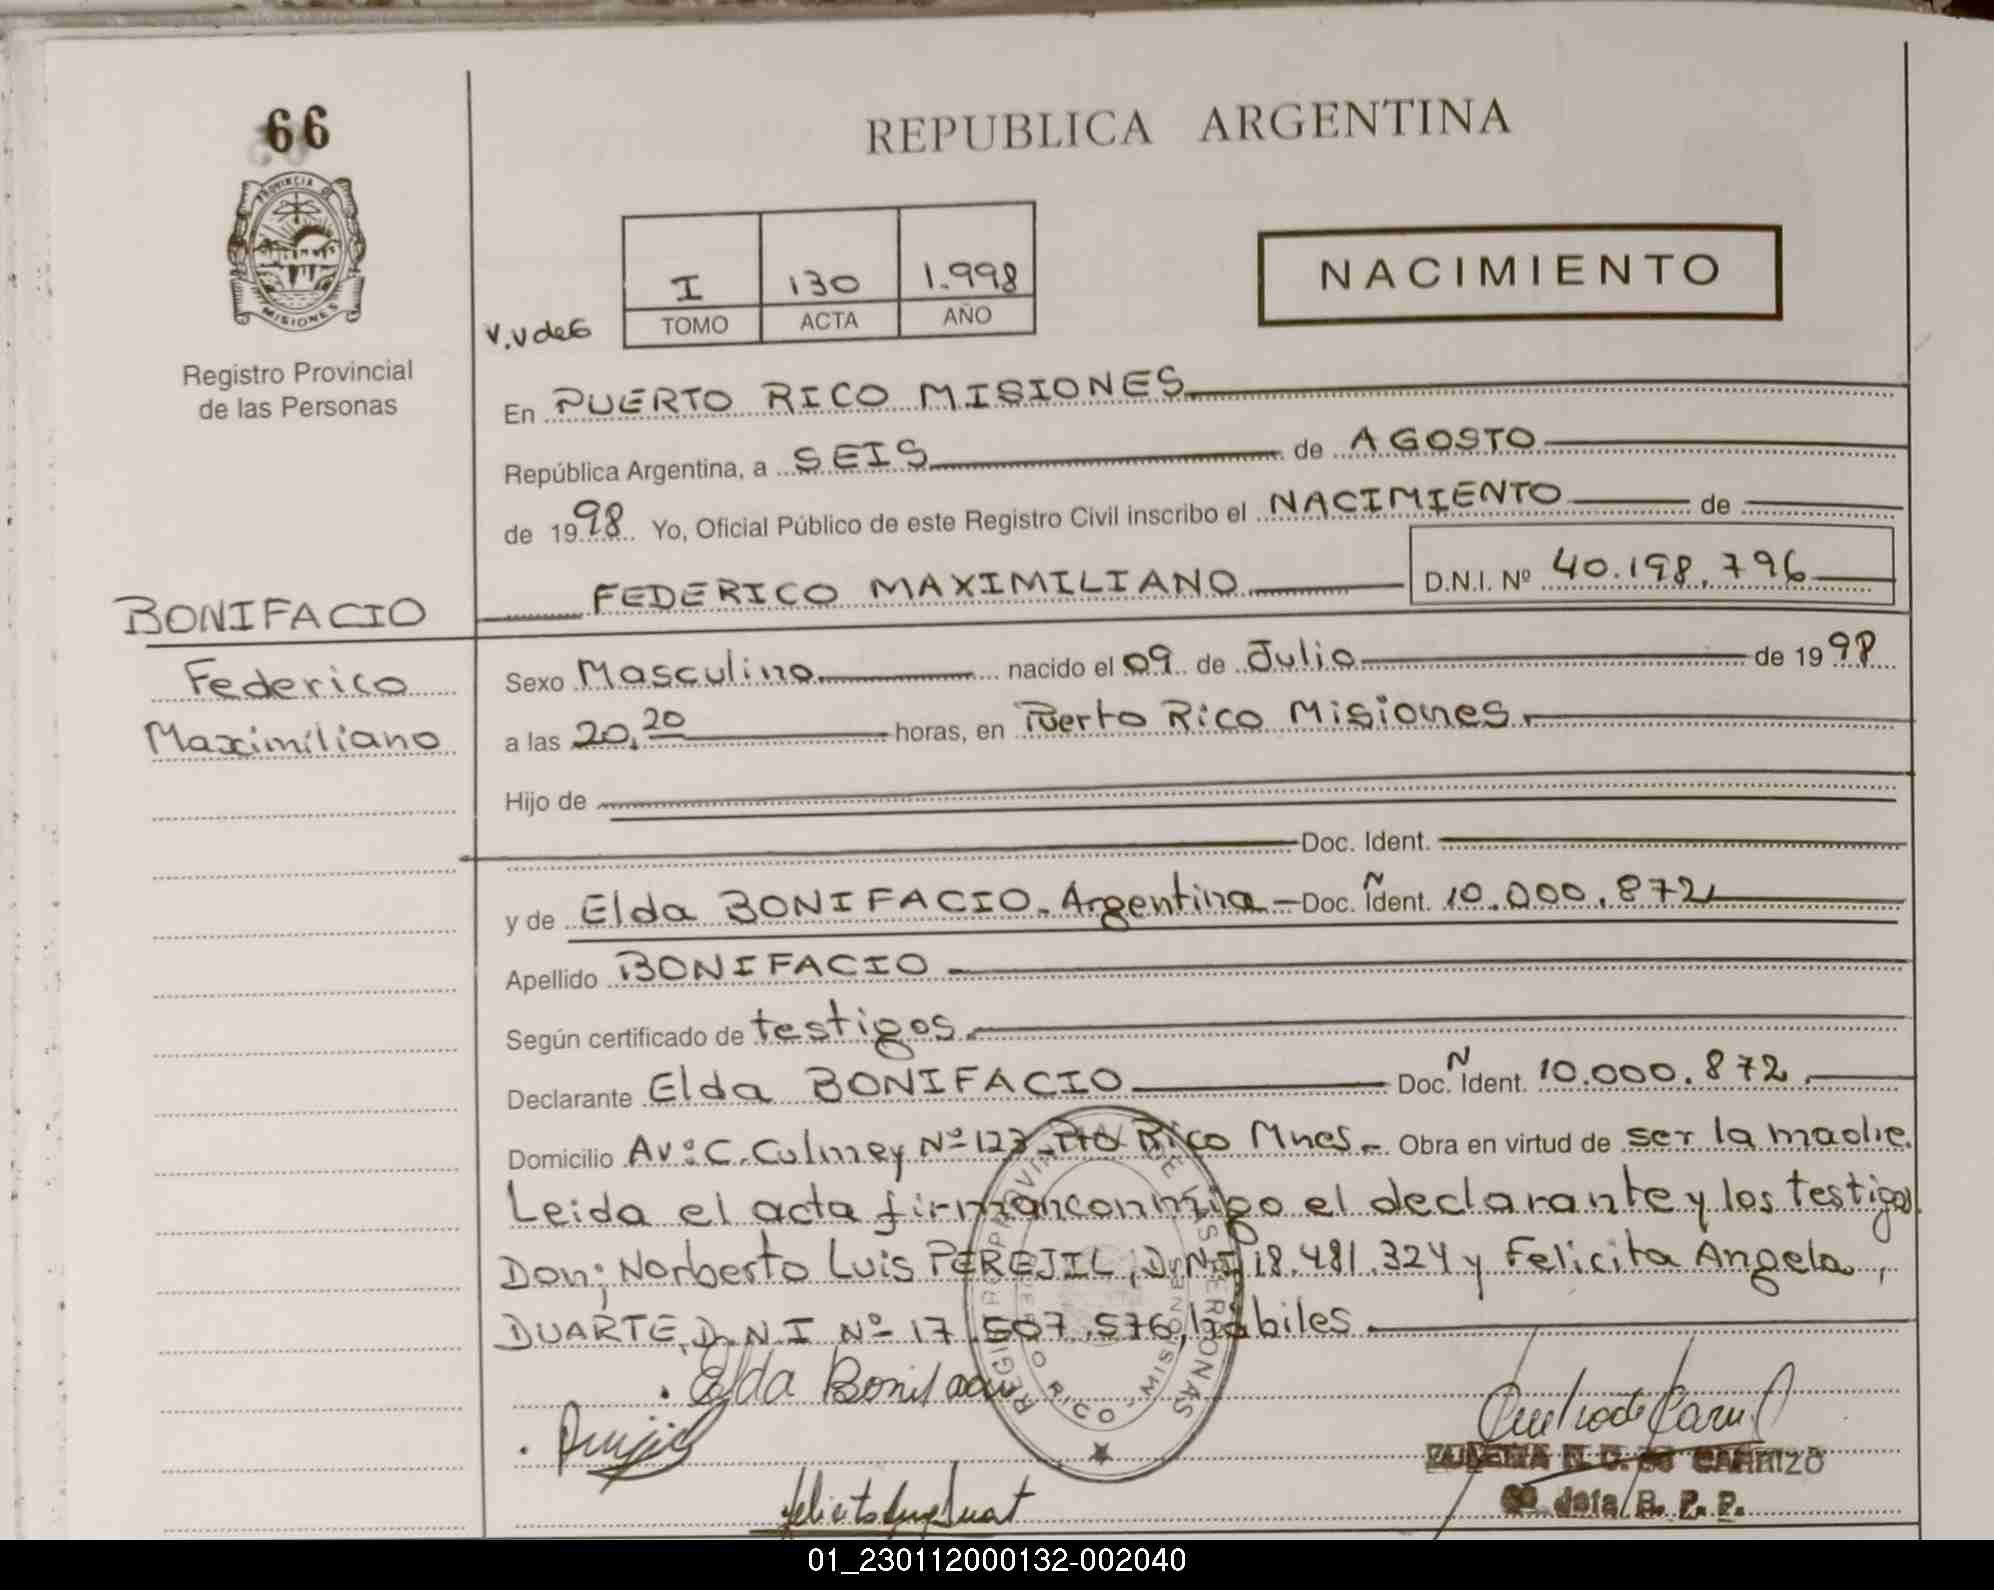 66
REPUBLICA ARGENTINA
PROVINCIA DE
MISIONES
Registro Provincial
de las Personas
I 130 1.998
V.V de 6 TOMO ACTA AÑO
NACIMIENTO
En PUERTO RICO MISIONES
República Argentina, a SEIS de AGOSTO
de 1998 Yo, Oficial Público de este Registro Civil inscribo el NACIMIENTO de
FEDERICO MAXIMILIANO D.N.I. Nº 40.198.796
BONIFACIO
Federico
Maximiliano
Sexo Masculino nacido el 09 de Julio de 1998
a las 20,20 horas, en Puerto Rico Misiones.
Hijo de
Doc. Ident.
y de Elda BONIFACIO. Argentina - Doc. Ñ Ident. 10.000.872
Apellido BONIFACIO
Según certificado de testigos
Declarante Elda BONIFACIO Doc. Ñ Ident. 10.000.872.
Domicilio Av: C. Culmey Nº 123 Pto Rico Mnes.- Obra en virtud de ser la madre.
Leida el acta firman conmigo el declarante y los testigos
Don; Norberto Luis PEREJIL, D.N.I 18.481.324 y Felicita Angela,
DUARTE, D.N I Nº 17.507.576, hábiles.
REGISTRO PROVINCIAL DE LAS PERSONAS
PUERTO RICO, MISIONES
Elda Bonifacio
N. C. de CARRIZO
Jefa R. P. P.
01_230112000132-002040